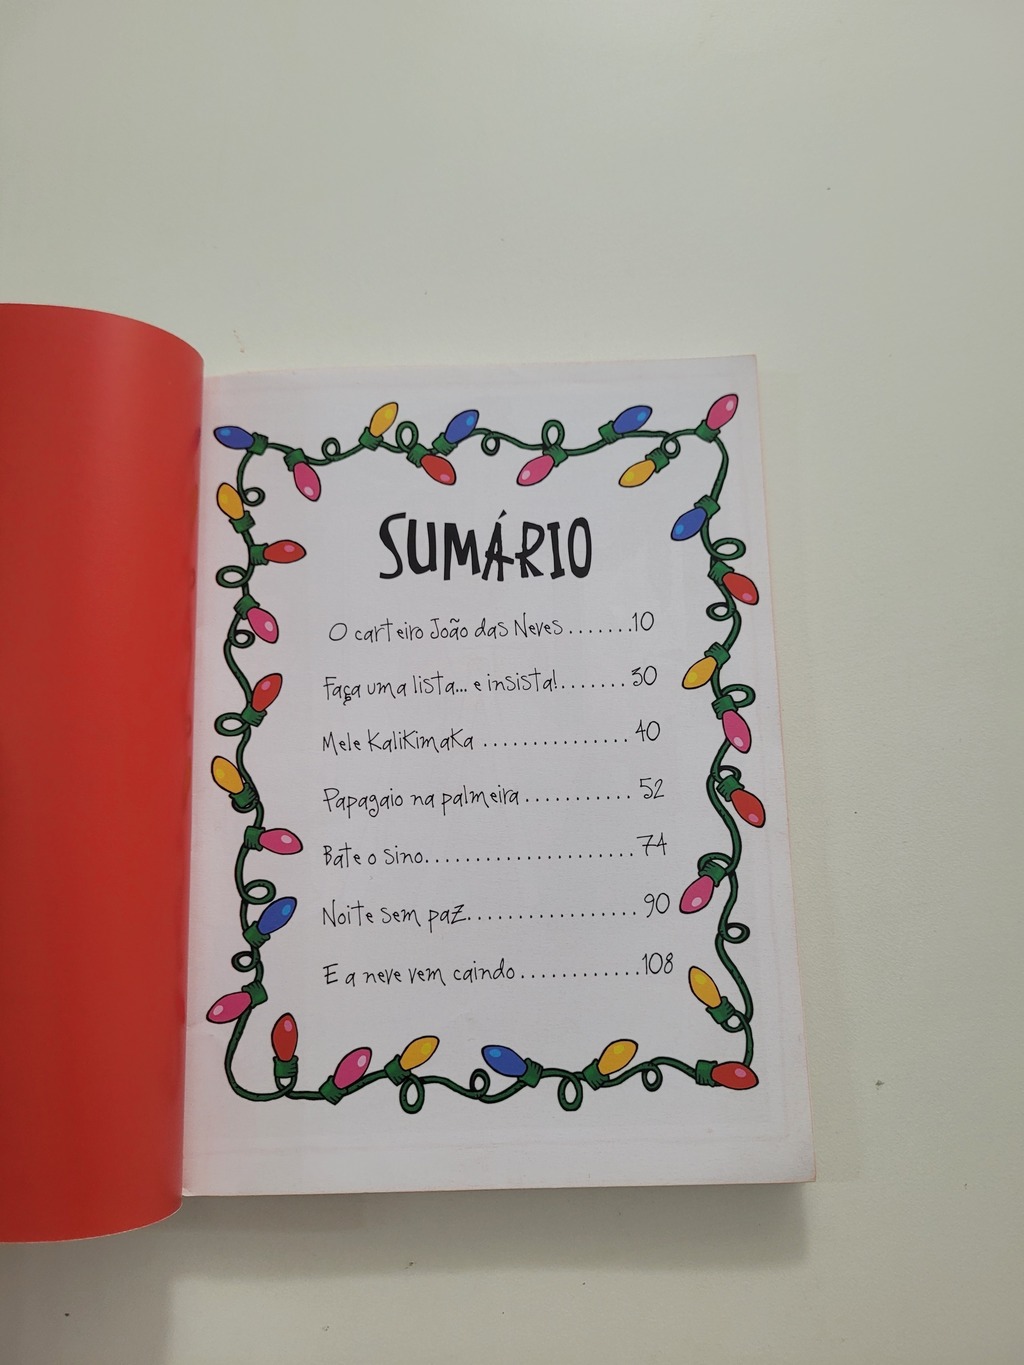 SUMÁRIO
O carteiro João das Neves.......10
Faça uma lista... e insista!.......30
Mele Kalikimaka ...............40
Papagaio na palmeira........... 52
Bate o sino......................74
Noite sem paz.................. 90
E a neve vem caindo............108